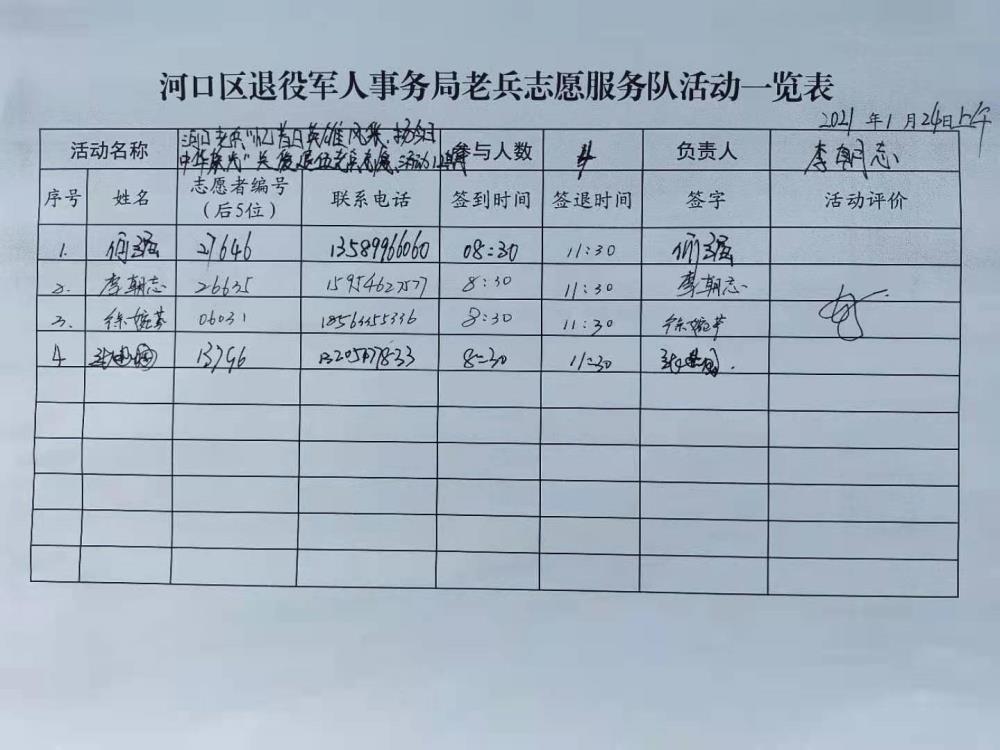 河口区退役军人事务局老兵志愿服务队活动一览表
2021年1月24日上午
活动名称 河口老兵"忆昔日英雄风采、扬今日 参与人数 4 负责人 李朝志
中华 活动
序号 姓名 志愿者编号 联系电话 签到时间 签退时间 签字 活动评价
（后5位）
1. 27646 13589966060 08:30 11:30
2. 李朝志 26635 15954627577 8:30 11:30 李朝志 好
3. 徐婉芬 06031 8:30 11:30 徐婉芬
4 13796 8:30 11:30